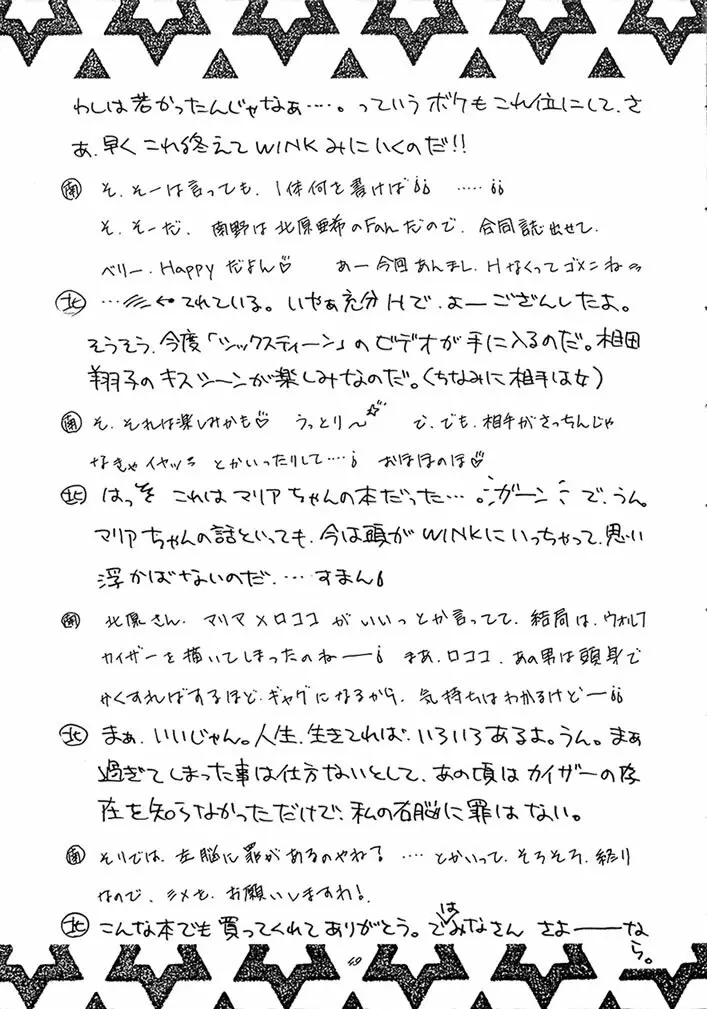 わしは若かったんじゃなぁ……。っていうボケもこれ位にして、さ
あ、早くこれ終えてWINKみにいくのだ!!
南 そ、そーは言っても、1体何を書けば¡¡ ……¡¡
そ、そーだ、南野は北原亜希のFanだので、合同誌出せて、
ベリー・Happyだよん♡ あー今回あんまし、Hなくってゴメンね
北 …←てれている。いやぁ充分Hで、よーござんしたよ。
そうそう、今度「シックスティーン」のビデオが手に入るのだ。相田
翔子のキスシーンが楽しみなのだ。(ちなみに相手は女)
南 そ、それは楽しみかも♡ うっとり〜☆ で、でも、相手がさっちんじゃ
なきゃイヤッ とかいったりして…¡ おほほのほ♡
北 はっ これはマリアちゃんの本だった… ガーン で、うん。
マリアちゃんの話といっても、今は頭がWINKにいっちゃって、思い
浮かばないのだ、…すまん¡
南 北原さん、マリア×ロココがいいっとか言ってて、結局は、ウォルフ
カイザーを描いてしまったのねー¡ まあ、ロココ、あの男は頭身で
かくすればするほど、ギャグになるから、気持ちはわかるけどー¡¡
北 まぁ、いいじゃん。人生、生きてれば、いろいろあるよ。うん。まぁ
過ぎてしまった事は仕方ないとして、あの頃はカイザーの存
在を知らなかっただけで、私の右脳に罪はない。
南 そりでは、左脳に罪があるのやね? …とかいって、そろそろ、終り
なので、シメを、お願いしますわ!
北 こんな本でも買ってくれてありがとう。ではみなさん さよーーなら。
49